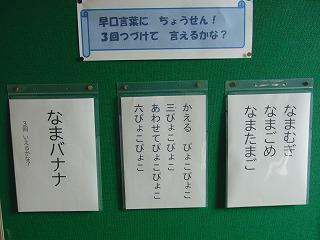 早口言葉に　ちょうせん！
３回つづけて　言えるかな？
なまむぎ
なまごめ
なまたまご
かえる　ぴょこぴょこ
三ぴょこぴょこ
あわせてぴょこぴょこ
六ぴょこぴょこ
なまバナナ
３回　いえるかな？